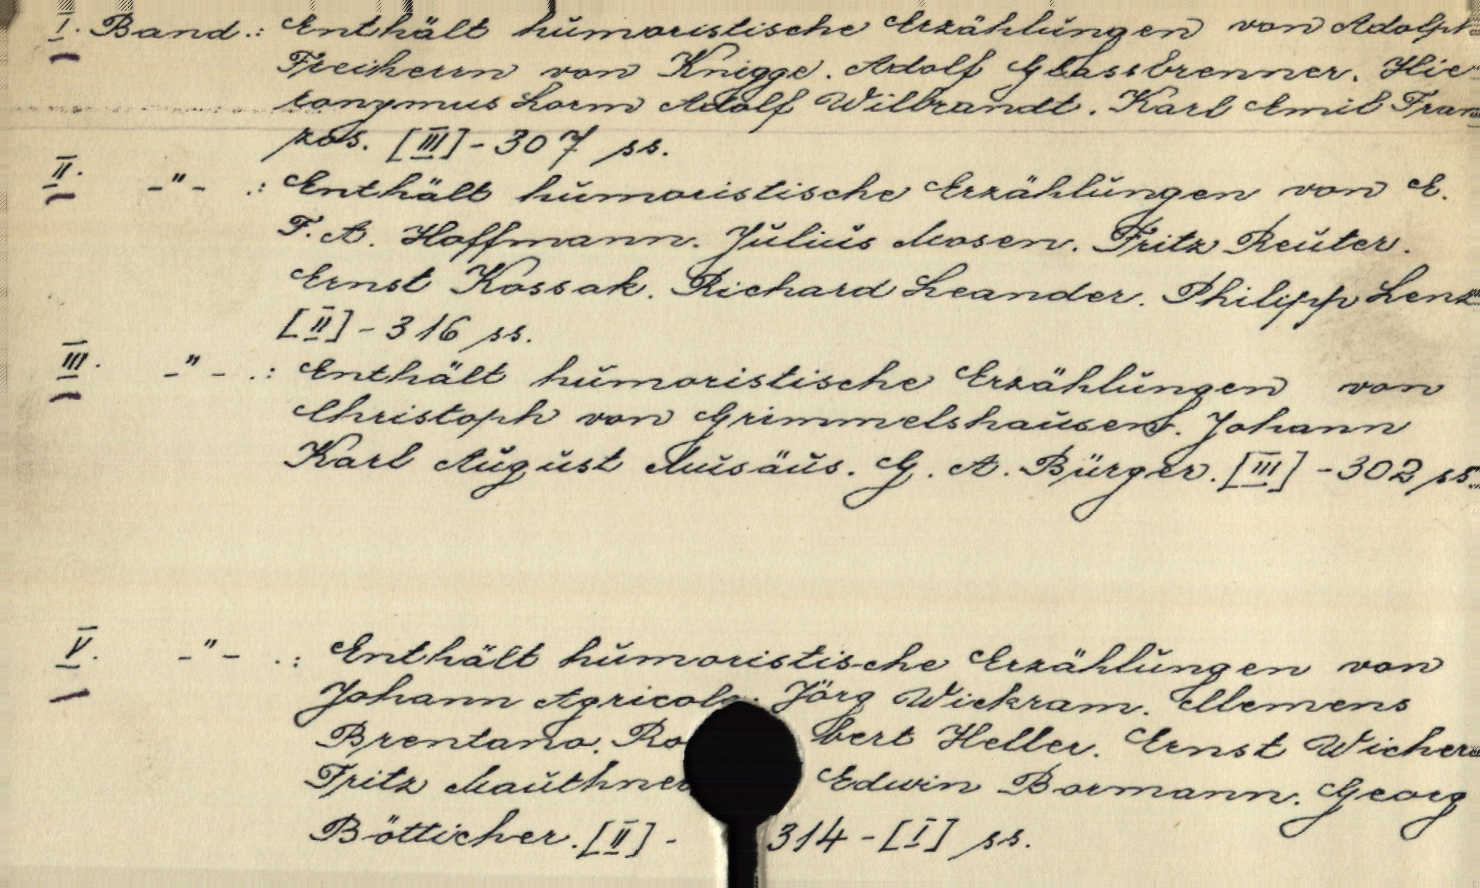 I. Band.: Enthält humoristische Erzählungen von Adolph
Freiherrn von Knigge. Adolf Glassbrenner. Hie-
ronymus Lorm Adolf Wilbrandt. Karl Emil Fran-
zos. [III] - 307 ss.
II. -"- .: Enthält humoristische Erzählungen von E.
F. A. Hoffmann. Julius Mosen. Fritz Reuter.
Ernst Kossak. Richard Leander. Philipp Lenz
[II] - 316 ss.
III. -"- .: Enthält humoristische Erzählungen von
Christoph von Grimmelshausen. Johann
Karl August Musäus. G. A. Bürger. [III] - 302 ss.
V. -"- .: Enthält humoristische Erzählungen von
Johann Agricola. Jörg Wickram. Clemens
Brentano. Robert Heller. Ernst Wichert
Fritz Mauthner Edwin Bormann. Georg
Bötticher. [II] - 314 - [I] ss.